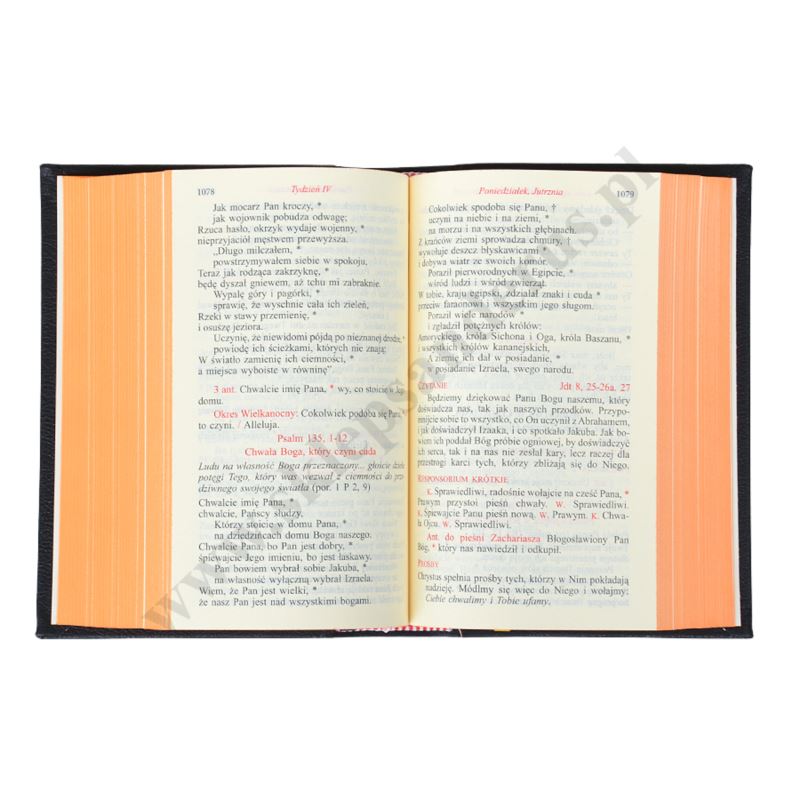 1078 Tydzień IV
Jak mocarz Pan kroczy, *
jak wojownik pobudza odwagę;
Rzuca hasło, okrzyk wydaje wojenny, *
nieprzyjaciół męstwem przewyższa.
„Długo milczałem, *
powstrzymywałem siebie w spokoju,
Teraz jak rodząca zakrzyknę, *
będę dyszał gniewem, aż tchu mi zabraknie.
Wypalę góry i pagórki, *
sprawię, że wyschnie cała ich zieleń,
Rzeki w stawy przemienię, *
i osuszę jeziora.
Uczynię, że niewidomi pójdą po nieznanej drodze, *
powiodę ich ścieżkami, których nie znają;
W światło zamienię ich ciemności, *
a miejsca wyboiste w równinę”.
3 ant. Chwalcie imię Pana, * wy, co stoicie w Jego
domu.
Okres Wielkanocny: Cokolwiek podoba się Panu,
to czyni. / Alleluja.
Psalm 135, 1-12
Chwała Boga, który czyni cuda
Ludu na własność Boga przeznaczony... głoście dzieła
potęgi Tego, który was wezwał z ciemności do prze-
dziwnego swojego światła (por. 1 P 2, 9)
Chwalcie imię Pana, *
chwalcie, Pańscy słudzy,
Którzy stoicie w domu Pana, *
na dziedzińcach domu Boga naszego.
Chwalcie Pana, bo Pan jest dobry, *
śpiewajcie Jego imieniu, bo jest łaskawy.
Pan bowiem wybrał sobie Jakuba, *
na własność wyłączną wybrał Izraela.
Wiem, że Pan jest wielki, *
że nasz Pan jest nad wszystkimi bogami.
Poniedziałek, Jutrznia 1079
Cokolwiek spodoba się Panu, †
uczyni na niebie i na ziemi, *
na morzu i na wszystkich głębinach.
Z krańców ziemi sprowadza chmury, †
wywołuje deszcz błyskawicami *
i dobywa wiatr ze swoich komór.
Poraził pierworodnych w Egipcie, *
wśród ludzi i wśród zwierząt.
W tobie, kraju egipski, zdziałał znaki i cuda *
przeciw faraonowi i wszystkim jego sługom.
Poraził wiele narodów *
i zgładził potężnych królów:
Amoryckiego króla Sichona i Oga, króla Baszanu, *
i wszystkich królów kananejskich,
A ziemię ich dał w posiadanie, *
w posiadanie Izraela, swego narodu.
CZYTANIE Jdt 8, 25-26a. 27
Będziemy dziękować Panu Bogu naszemu, który
doświadcza nas, tak jak naszych przodków. Przypo-
mnijcie sobie to wszystko, co On uczynił z Abrahamem,
i jak doświadczył Izaaka, i co spotkało Jakuba. Jak bo-
wiem ich poddał Bóg próbie ogniowej, by doświadczyć
ich serca, tak i na nas nie zesłał kary, lecz raczej dla
przestrogi karci tych, którzy zbliżają się do Niego.
RESPONSORIUM KRÓTKIE
K. Sprawiedliwi, radośnie wołajcie na cześć Pana, *
Prawym przystoi pieśń chwały. W. Sprawiedliwi.
K. Śpiewajcie Panu pieśń nową. W. Prawym. K. Chwa-
ła Ojcu. W. Sprawiedliwi.
Ant. do pieśni Zachariasza Błogosławiony Pan
Bóg, * który nas nawiedził i odkupił.
PROŚBY
Chrystus spełnia prośby tych, którzy w Nim pokładają
nadzieję. Módlmy się więc do Niego i wołajmy:
Ciebie chwalimy i Tobie ufamy.